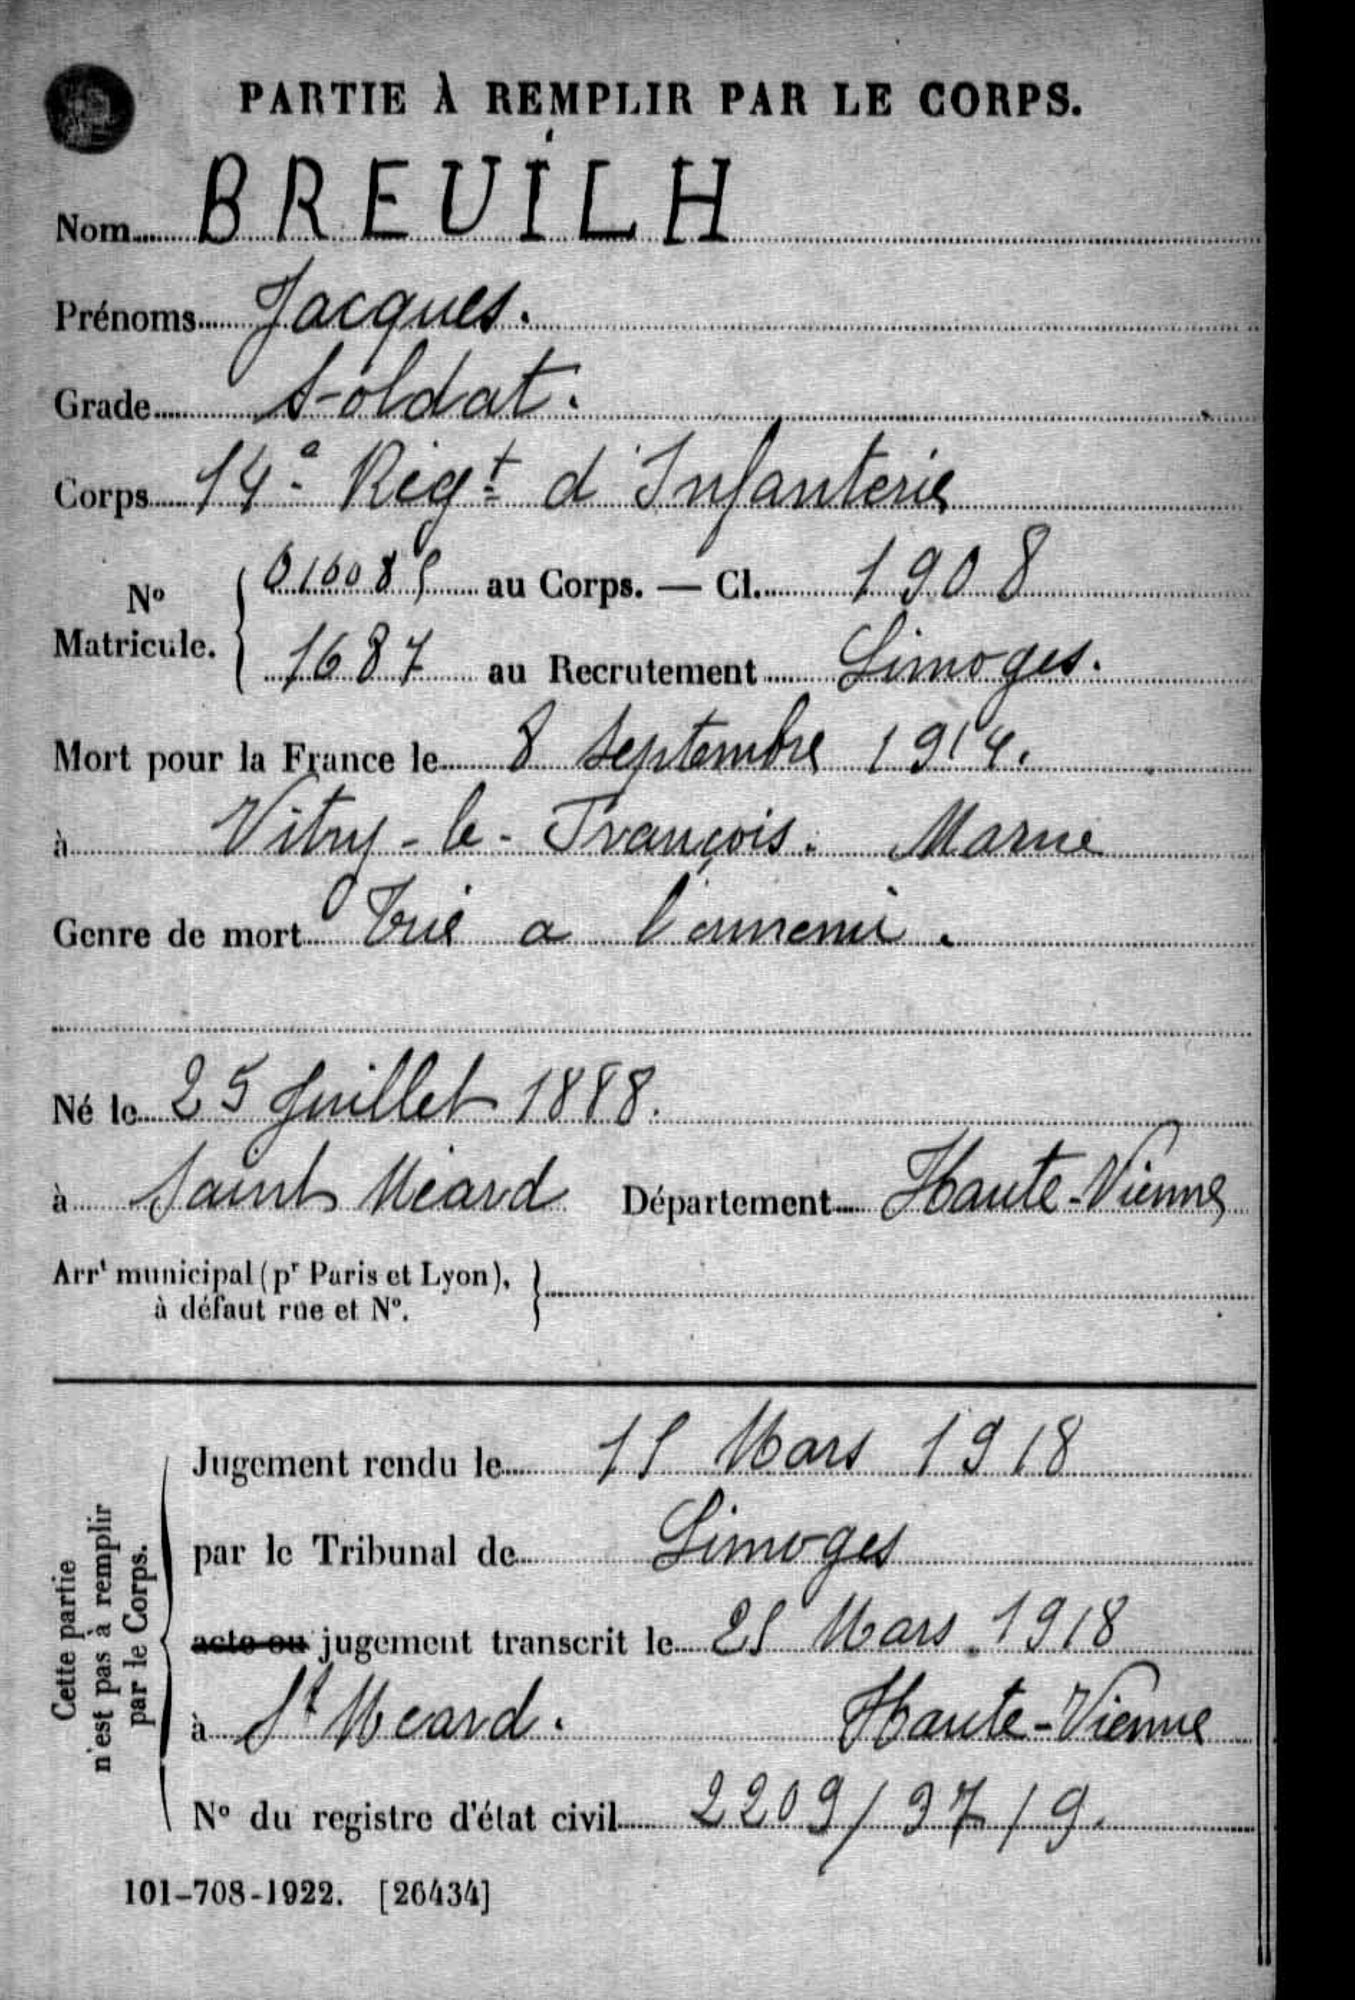 PARTIE À REMPLIR PAR LE CORPS.
Nom BREUILH
Prénoms Jacques.
Grade Soldat.
Corps 14e Régt d'Infanterie
No Matricule. { 016085 au Corps. — Cl. 1908
1687 au Recrutement Limoges.
Mort pour la France le 8 Septembre 1914.
à Vitry-le-François. Marne
Genre de mort Tué a l'ennemi.
Né le 25 Juillet 1888.
à Saint Méard Département Haute-Vienne
Arrt municipal (pr Paris et Lyon), }
à défaut rue et No.
Cette partie
n'est pas à remplir
par le Corps.
Jugement rendu le 15 Mars 1918
par le Tribunal de Limoges
acte ou jugement transcrit le 25 Mars 1918
à St Meard. Haute-Vienne
No du registre d'état civil 2209/37/9.
101-708-1922. [26434]